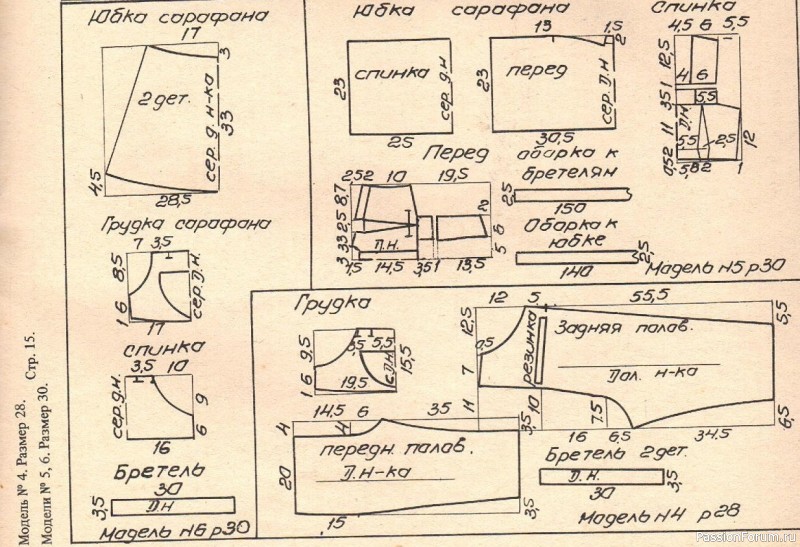 Юбка сарафана
17
3
2 дет.
сер. д. н-ка
33
4,5
28,5
Грудка сарафана
7 3,5
8,5
сер. д.н.
1 6
17
спинка
3,5 10
сер.д.н.
9
6
16
Бретель
30
3,5
Д.Н
Мадель N6 р30
Юбка сарафана
спинка
23
сер. д.н
25
13
1,5
2
перед
23
сер. д.н
30,5
спинка
4,5 6 5,5
12,5
4 6
1
35
5,5
Д.Н.
11
5,5
2,5
12
0,52
5,8 2
1
Перед
252 10 19,5
8,7
2,5
33
3
Д.Н.
6
5
1,5 14,5 3,51 13,5
оборка к
бретелям
2,5
150
Оборка к
юбке
2,5
140
Мадель N5 р30
Грудка
9,5
5,5
15,5
с.Д.Н.
1 6
19,5
12 5 55,5
12,5
5,5
Задняя палав.
7
резинка
Дол. н-ка
11
10
7,5
16 6,5 34,5
6,5
14,5 6 35
4
4
3,5
передн. палав.
20
Д.Н-ка
15
3,5
Бретель 2 дет.
Д.Н.
30
3,5
Мадель N4 р28
Модель № 4. Размер 28.
Модели № 5, 6. Размер 30. Стр. 15.
PassionForum.ru